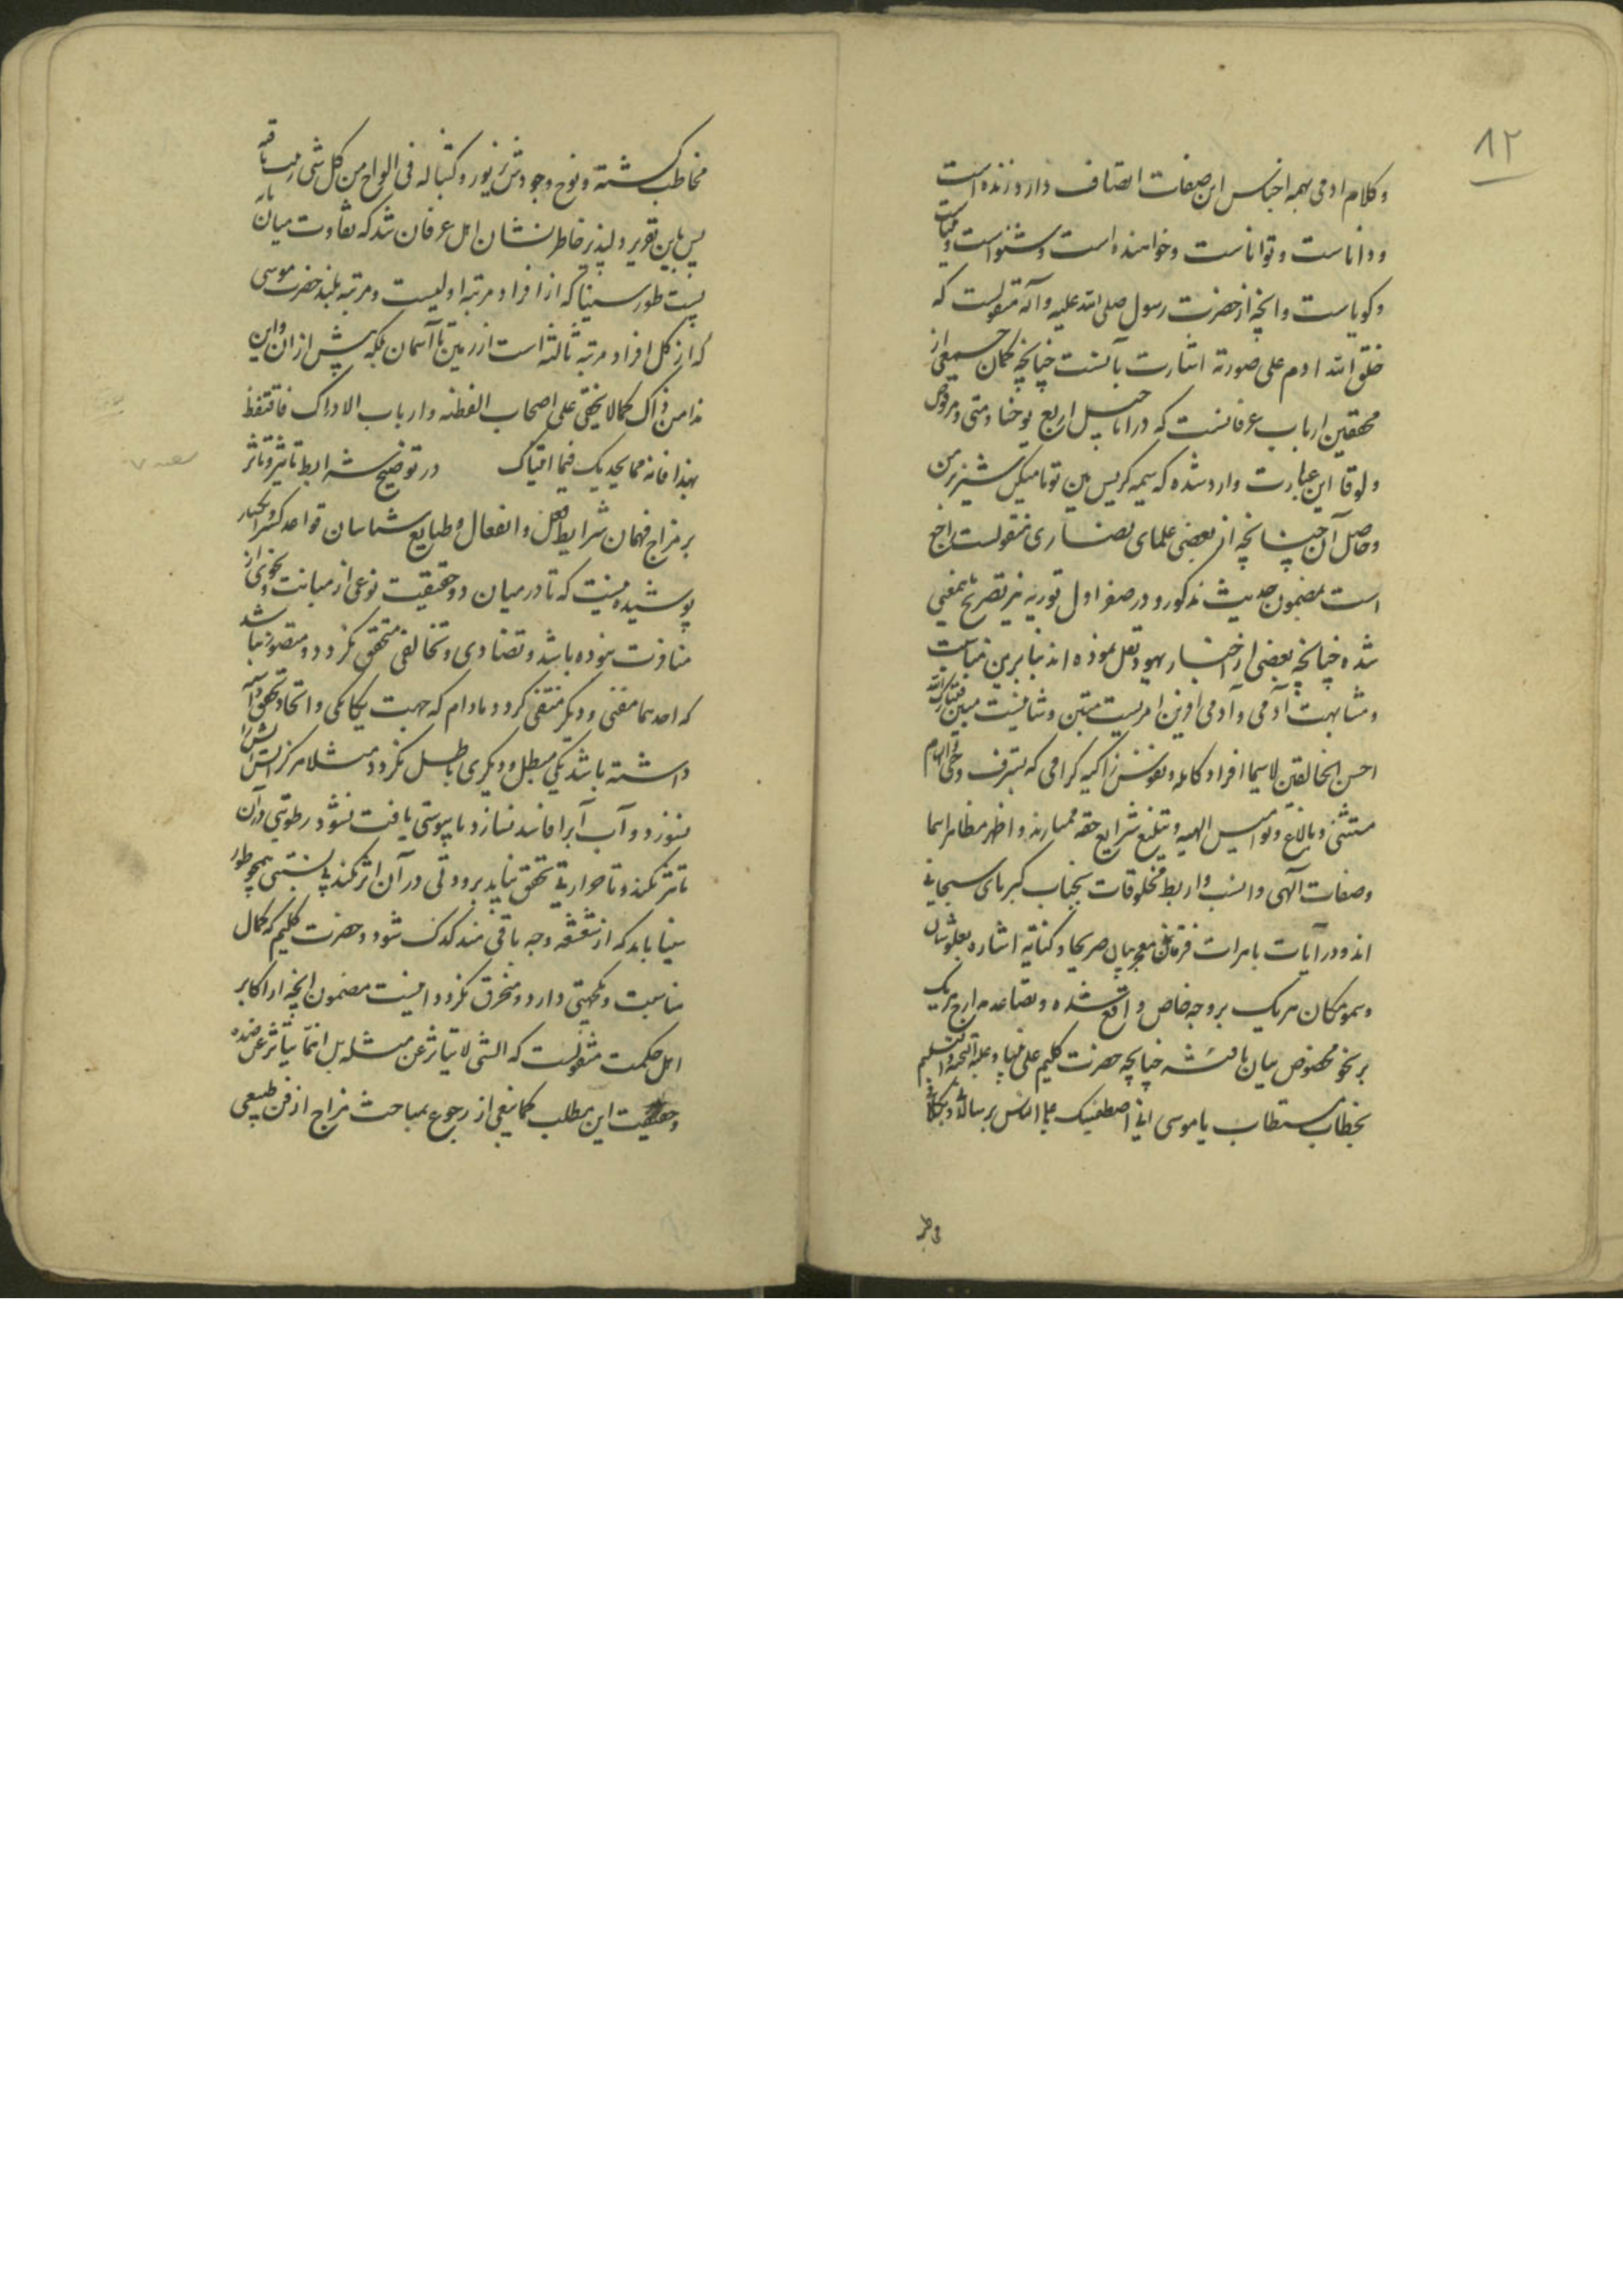 ۸۲
وکلام ادمی بهمه اجناس این صفات اتصاف دارد و زنده است
و داناست و تواناست و خواهنده است و شنواست و بیناست
و کویاست و انچه از حضرت رسول صلی الله علیه و آله منقولست که
خلق الله ادم علی صورته اشارت بآنست چنانچه کمان جمعی از
محققین ارباب عرفانست که در اناجیل اربع یوحنا و متی و مرقوص
و لوقا این عبارت وارد شده که
و حاصل آن چنانچه از بعضی علمای نصاری منقولست راجع
است بمضمون حدیث مذکور و در صفر اول توریة نیز تصریح بمعنی
شده چنانچه بعضی از احبار یهود نقل نموده اند بنا برین مناسبت
و مشابهت آدمی و آدمی افرین امریست متین و شانیست مبین فتبارک الله
احسن الخالقین لاسیما افراد کامله و نفوس زاکیه کرامی که بشرف وحی و الهام
مستثنی و بابلاغ نوامیس الهیه و تبلیغ شرایع حقه ممتازند و اظهر مظاهر اسما
وصفات الهی و انسب و اربط مخلوقات بجناب کبریای سبحانی
اند و در آیات باهرات فرقانی معجز بیان صریحا و کنایة اشاره بعلو شان
و سمو مکان هریک بر وجه خاص واقع شده و تصاعد مدارج هریک
بر نحو مخصوص بیان یافته چنانچه حضرت کلیم علی نبینا و علیه التحیة و التسلیم
بخطاب مستطاب یا موسی انی اصطفیتک علی الناس برسالاتی و بکلامی
مخاطب
مخاطب کشته و لوح وجودش بزیور و کتبنا له فی الالواح من کل شی
پس باین تقریر دلپذیر خاطرنشان اهل عرفان شد که تفاوت میان
پست طور سینا که از افراد مرتبه اولیست و مرتبه بلند حضرت موسی
که از کل افراد مرتبه ثالثه است از زمین تا آسمان بلکه بیش از ان و این
هذا من ذاک کما لا یخفی علی اصحاب الفطنه و ارباب الادراک فاحتفظ
بهذا فانه مما یجدیک فیما اتیناک در توضیح شرایط تاثیر و تاثر
بر مزاج فهمان شرایط فعل و انفعال و طبایع شناسان قواعد کسر و انکسار
پوشیده نیست که تا در میان دو حقیقت نوعی از مباینت و نحوی از
منافرت نبوده باشد و تضادی و تخالفی متحقق نکردد و متصور نباشد
که احدهما مفنی و دیکر منتفی کردد و مادام که جهت یکانکی و اتحاد تحقق داشته
داشته باشد یکی مبطل و دیکری باطل نکردد مثلا هرکز اتش اتش را
نسوزد و آب آبرا فاسد نسازد تا یبوستی یافت نشود رطوبتی در آن
تاثر نکند و تا حرارتی تحقق نیابد برودتی در آن اثر نکند پستی همچو طور
سینا باید که از شعشعه وجه باقی مندکدک شود و حضرت کلیم که کمال
مناسبت و یکجهتی دارد و منحرق نکردد اینست مضمون انچه از اکابر
اهل حکمت منقولست که الشی لا یتاثر عن مثله بل انما یتاثر عن ضده
و حقیقت این مطلب کما ینبغی از رجوع بمباحث مزاج از فن طبیعی